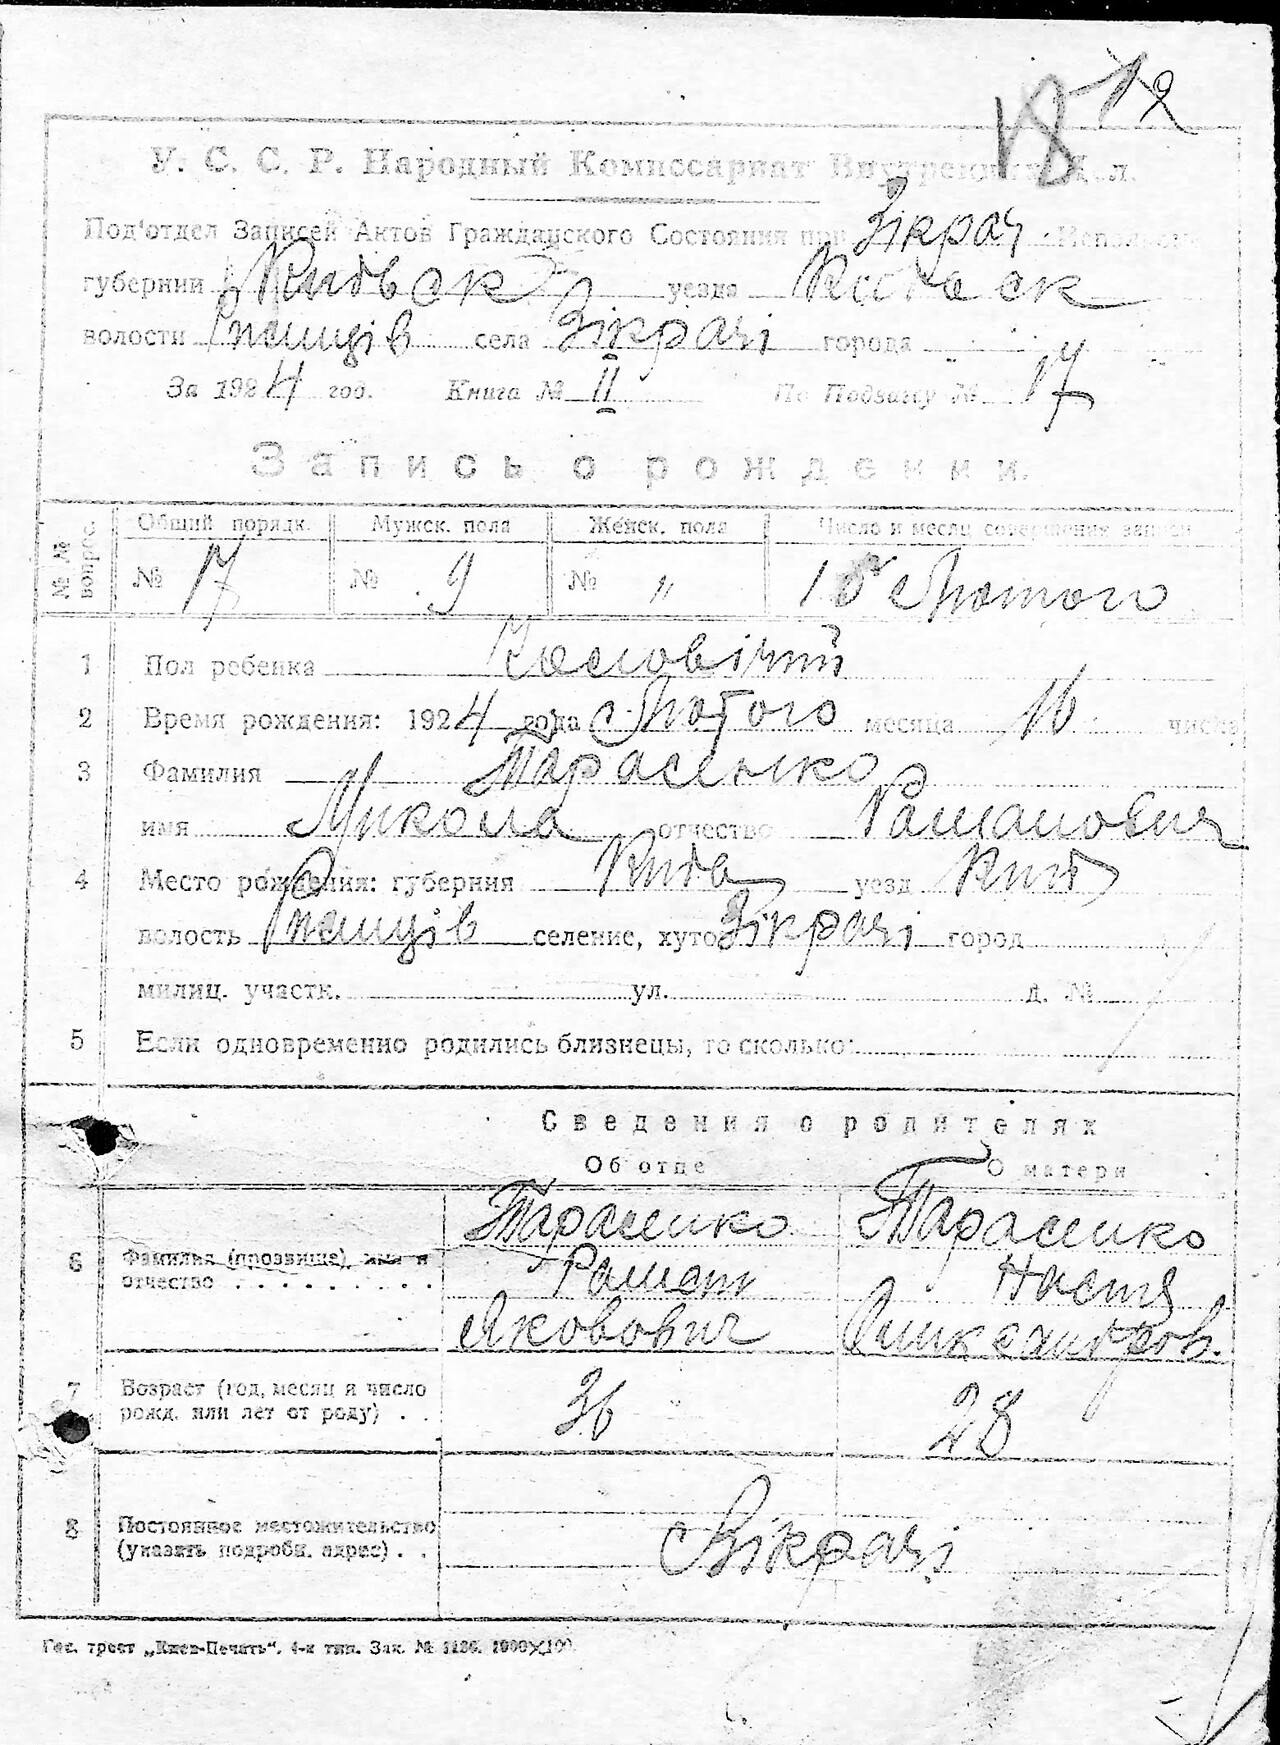 18 19
У. С. С. Р. Народный Комиссариат Внутренних Дел.
Под'отдел Записей Актов Гражданского Состояния при Зікрач. Исполком
губернии Київськ уезда Київськ
волости села Зікрачі города
За 1924 год. Книга № II По Подзагсу № 17
Запись о рождении.
№№ вопрос. Общий порядк. Мужск. пола Женск. пола Число и месяц совершения записи
№ 17 № 9 № „ Лютого
1 Пол ребенка Чоловічий
2 Время рождения: 1924 года Лютого месяца 16 числа
3 Фамилия Тарасенко
имя Микола отчество Романович
4 Место рождения: губерния Київ уезд Київ
волость селение, хутор Зікрачі город
милиц. участк. ул. д. №
5 Если одновременно родились близнецы, то сколько:
Сведения о родителях
Об отце О матери
Тарасенко Тарасенко
6 Фамилия (прозвище), имя и Роман Настя
отчество . . . . . . . . Яковович Олександров.
7 Возраст (год, месяц и число
рожд. или лет от роду) . . 36 28
8 Постоянное местожительство
(указать подробн. адрес) . . Зікрачі
Гос. трест „Киев-Печать“. 4-я тип. Зак. № 1186. 1000×100